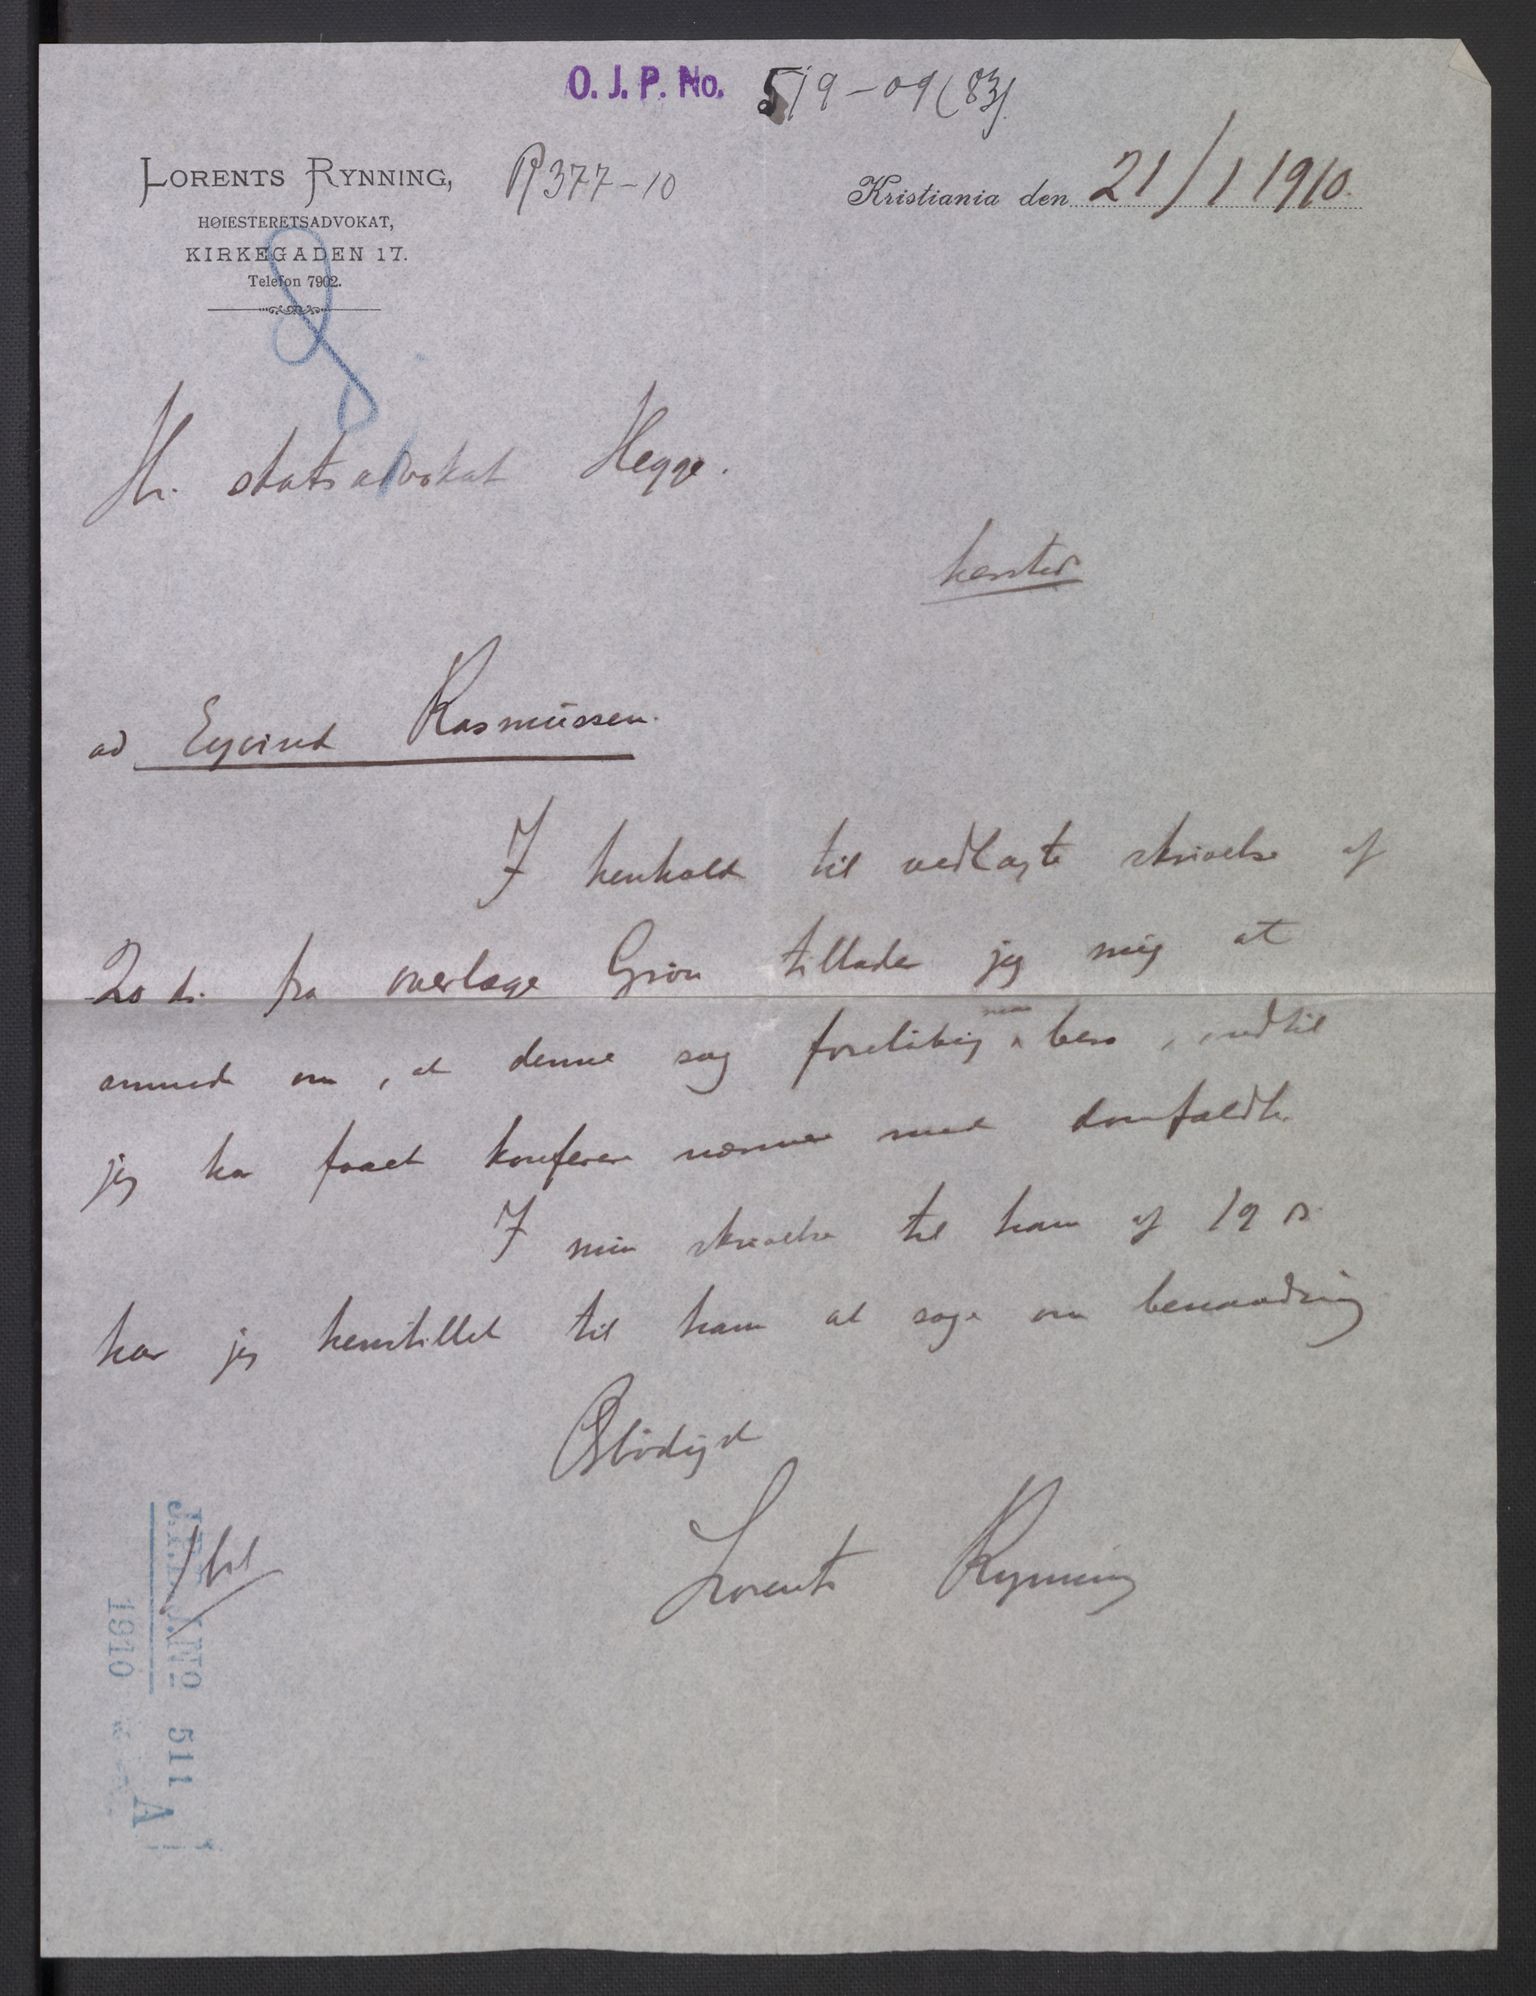 O. J. P. No. 519-09(83)
LORENTS RYNNING,
R 377-10
Kristiania den 21/1 1910.
HØIESTERETSADVOKAT,
KIRKEGADEN 17.
Telefon 7902.
Hr. statsadvokat Hegge.
hersted
ad Eyvind Rasmussen.
I henhold til vedlagte skrivelse af
20 ds. fra overlæge Grøn tillader jeg mig at
anmode om, at denne sag foreløbig maa bero, indtil
jeg har faaet konferere nærmere med domfældte.
I min skrivelse til ham af 19 ds
har jeg henstillet til ham at søge om benaadning
Ærbødigst
Lorents Rynning
1 bil
J.No 511
1910 A